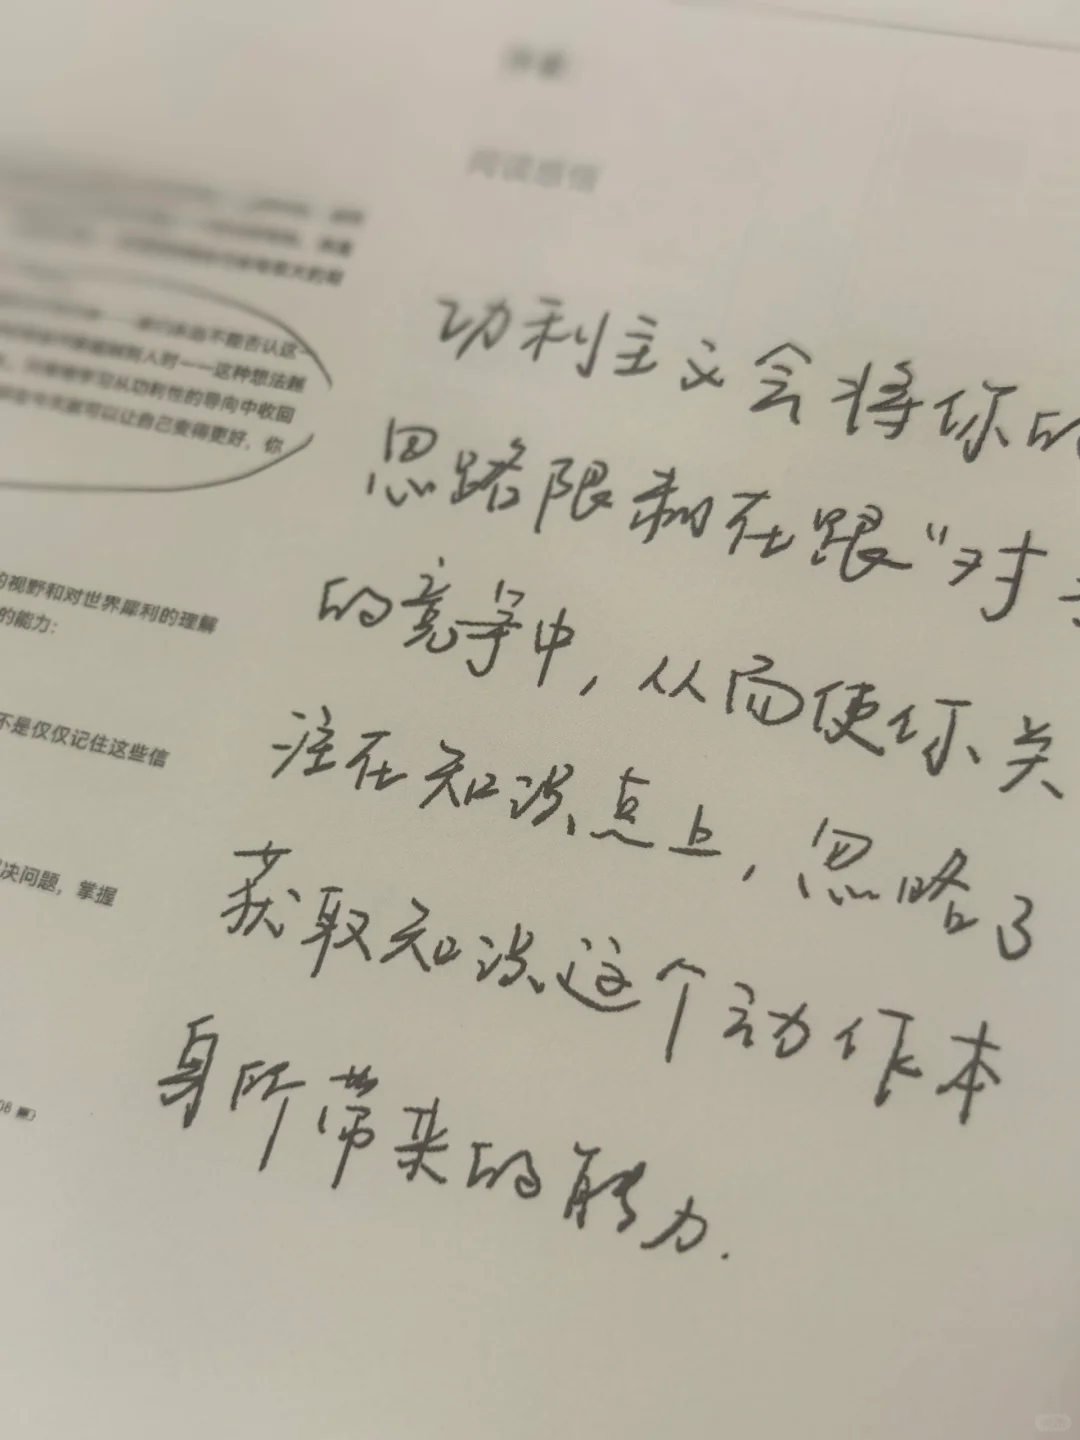 阅读感悟
不能否认这一
人对——这种想法越
学习从功利性的导向中收回
可以让自己变得更好，你
的视野和对世界犀利的理解
的能力：
不是仅仅记住这些信
决问题，掌握
功利主义会将你的
思路限制在跟“对
的竞争中，从而使你关
注在知识点上，忽略了
获取知识这个动作本
身所带来的能力.